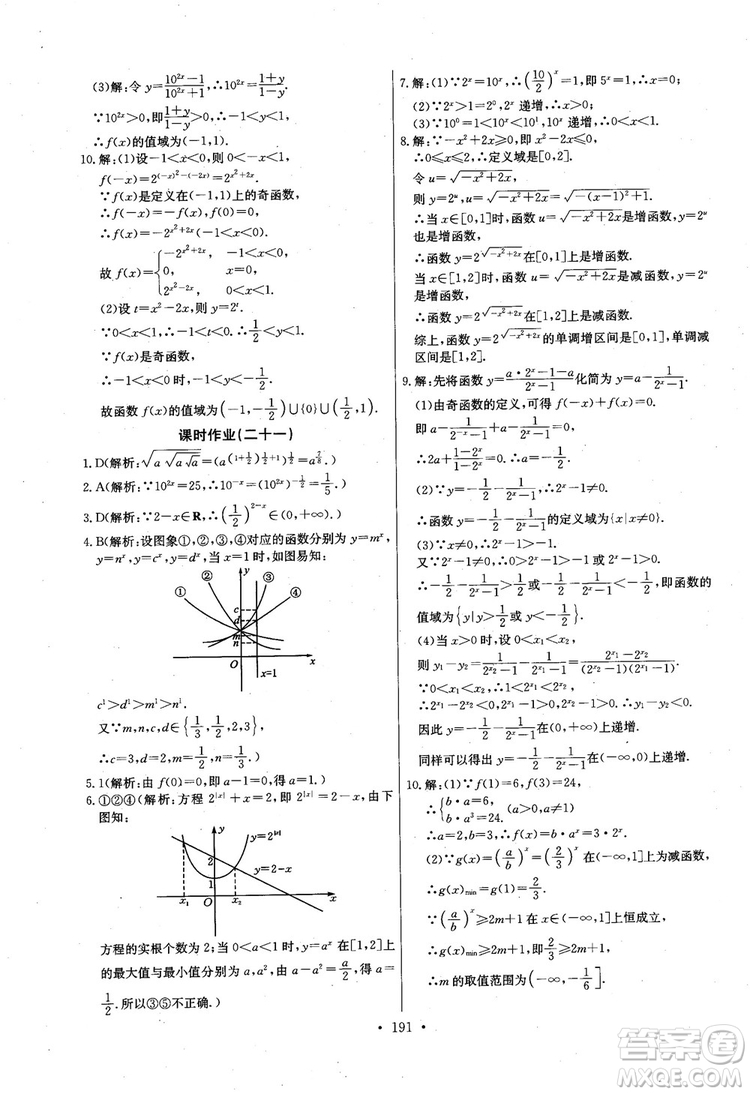 (3)解：令 y=\frac{10^{2x}-1}{10^{2x}+1}，∴10^{2x}=\frac{1+y}{1-y}.
∵10^{2x}>0，即\frac{1+y}{1-y}>0，∴-1<y<1.
∴f(x)的值域为(-1,1).
10.解：(1)设-1<x<0，则 0<-x<1，
f(-x)=2^{(-x)^2-2(-x)}=2^{x^2+2x}.
∵f(x)是定义在(-1,1)上的奇函数，
∴f(-x)=-f(x)，f(0)=0.
∴f(x)=-2^{x^2+2x}(-1<x<0).
故 f(x)=\begin{cases}-2^{x^2+2x} & -1<x<0,\\0 & x=0,\\2^{x^2-2x} & 0<x<1.\end{cases}
(2)设 t=x^2-2x，则 y=2^t.
∵0<x<1，∴-1<t<0. ∴\frac{1}{2}<y<1.
∵f(x)是奇函数，
∴-1<x<0时，-1<y<-\frac{1}{2}.
故函数 f(x)的值域为(-1,-\frac{1}{2})∪{0}∪(\frac{1}{2},1).
课时作业(二十一)
1. D(解析：\sqrt{a\sqrt{a\sqrt{a}}}=(a^{(1+\frac{1}{2})\frac{1}{2}+1})^{\frac{1}{2}}=a^{\frac{7}{8}}.)
2. A(解析：∵10^{2x}=25，∴10^{-x}=(10^{2x})^{-\frac{1}{2}}=\frac{1}{5}.)
3. D(解析：∵2-x∈R，∴(\frac{1}{2})^{2-x}∈(0,+∞).)
4. B(解析：设图象①,②,③,④对应的函数分别为 y=m^x，
y=n^x，y=c^x，y=d^x，当 x=1时，如图易知：
① ② y ③ ④
c
d
m
n
O x=1 x
c^1>d^1>m^1>n^1.
又∵m,n,c,d∈{\frac{1}{3},\frac{1}{2},2,3}，
∴c=3,d=2,m=\frac{1}{2},n=\frac{1}{3}.)
5. 1(解析：由 f(0)=0可得，a-1=0，∴a=1.)
6. ①②④(解析：方程 2^{|x|}+x=2，即 2^{|x|}=2-x，由下
图知：
y y=2^{|x|}
2
y=2-x
x_1 O x_2 x
方程的实根个数为 2；当 0<a<1时，y=a^x 在[1,2]上
的最大值与最小值分别为 a,a^2，由 a-a^2=\frac{a}{2}，得 a=
\frac{1}{2}.所以③⑤不正确.)
7.解：(1)∵2^x=10^x，∴(\frac{10}{2})^x=1，即5^x=1，∴x=0.
(2)∵2^x>1=2^0，2^x 递增，∴x>0.
(3)∵10^0=1<10^x<10^1，10^x 递增，∴0<x<1.
8.解：∵-x^2+2x≥0，即 x^2-2x≤0，
∴0≤x≤2，∴定义域是[0,2].
令 u=\sqrt{-x^2+2x}，
则 y=2^u，u=\sqrt{-x^2+2x}=\sqrt{-(x-1)^2+1}.
∴当 x∈[0,1]时，函数 u=\sqrt{-x^2+2x}为增函数，y=2^u
也是增函数.
∴函数 y=2^{\sqrt{-x^2+2x}}在[0,1]上是增函数.
当 x∈[1,2]时，函数 u=\sqrt{-x^2+2x}为减函数，y=2^u
是增函数.
∴函数 y=2^{\sqrt{-x^2+2x}}在[1,2]上是减函数.
综上，函数 y=2^{\sqrt{-x^2+2x}}的单调增区间是[0,1]，单调减
区间是[1,2].
9.解：先将函数 y=\frac{a·2^x-1-a}{2^x-1}化简为 y=a-\frac{1}{2^x-1}.
(1)由奇函数的定义，可得 f(-x)+f(x)=0，
即 a-\frac{1}{2^{-x}-1}+a-\frac{1}{2^x-1}=0，
∴2a+\frac{1-2^x}{1-2^x}=0，∴a=-\frac{1}{2}.
(2)∵y=-\frac{1}{2}-\frac{1}{2^x-1}，∴2^x-1≠0.
∴函数 y=-\frac{1}{2}-\frac{1}{2^x-1}的定义域为{x|x≠0}.
(3)∵x≠0，∴2^x-1>-1.
∵2^x-1≠0，∴0>2^x-1>-1或2^x-1>0.
∴-\frac{1}{2}-\frac{1}{2^x-1}>\frac{1}{2}或-\frac{1}{2}-\frac{1}{2^x-1}<-\frac{1}{2}，即函数的
值域为{y|y>\frac{1}{2}或 y<-\frac{1}{2}}.
(4)当 x>0时，设 0<x_1<x_2，
则 y_1-y_2=\frac{1}{2^{x_2}-1}-\frac{1}{2^{x_1}-1}=\frac{2^{x_1}-2^{x_2}}{(2^{x_2}-1)(2^{x_1}-1)}.
∵0<x_1<x_2，∴1<2^{x_1}<2^{x_2}.
∴2^{x_1}-2^{x_2}<0，2^{x_1}-1>0，2^{x_2}-1>0. ∴y_1-y_2<0.
因此 y=-\frac{1}{2}-\frac{1}{2^x-1}在(0,+∞)上递增.
同样可以得出 y=-\frac{1}{2}-\frac{1}{2^x-1}在(-∞,0)上递增.
10.解：(1)∵f(1)=6，f(3)=24，
∴\begin{cases}b·a=6,\\b·a^3=24.\end{cases}(a>0，a≠1)
∴a=2，b=3. ∴f(x)=b·a^x=3·2^x.
(2)∵g(x)=(\frac{a}{b})^x=(\frac{2}{3})^x在(-∞,1]上为减函数，
∴g(x)_{min}=g(1)=\frac{2}{3}.
∵(\frac{a}{b})^x≥2m+1在 x∈(-∞,1]上恒成立，
∴g(x)_{min}≥2m+1，即\frac{2}{3}≥2m+1，∴m≤-\frac{1}{6}.
∴m 的取值范围为(-∞,-\frac{1}{6}].
• 191 •
答案圈
MXQE.COM